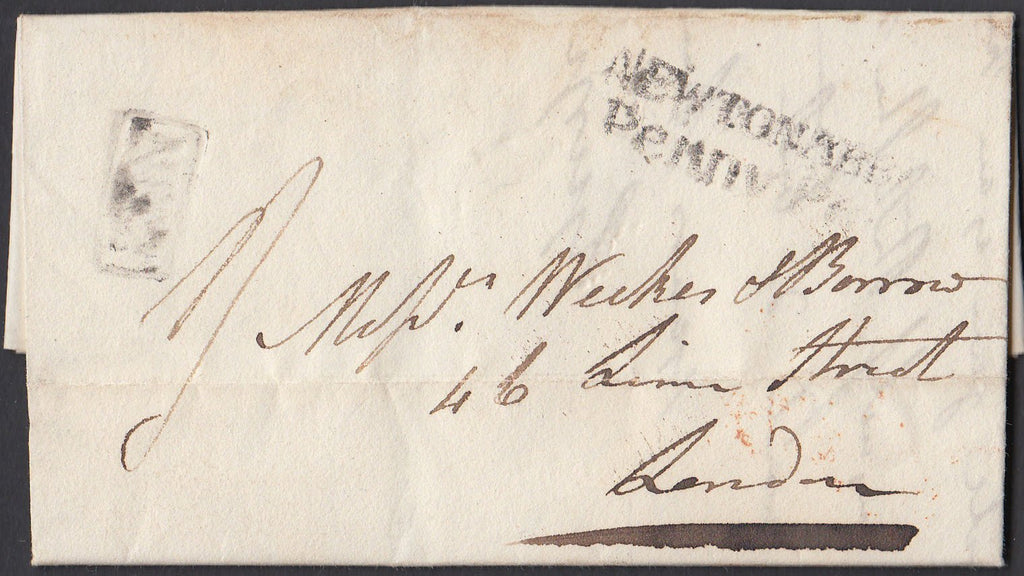 NEWTON ABBOT
Penny Post
Messrs. Weekes & Borrow
46 Lime Street
London